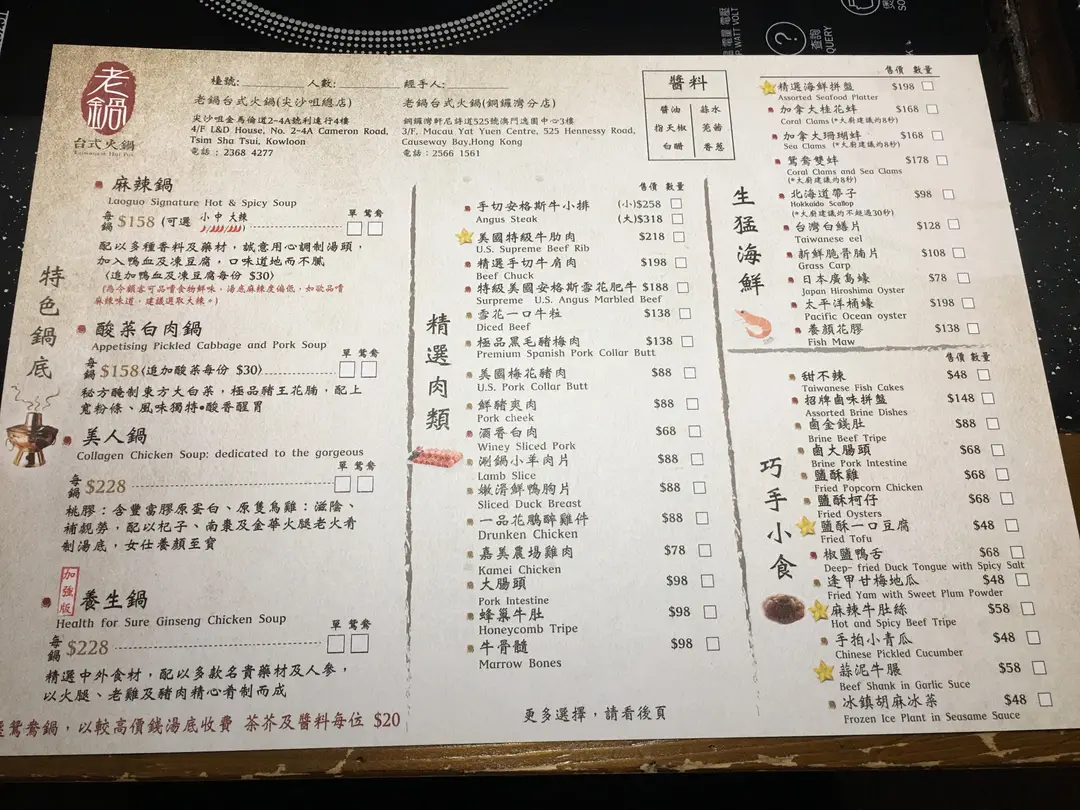 老鍋
台式火鍋
檯號: 人數: 經手人:
老鍋台式火鍋(尖沙咀總店)
尖沙咀金馬倫道2-4A號利達行4樓
4/F L&D House, No. 2-4A Cameron Road,
Tsim Sha Tsui, Kowloon
電話 : 2368 4277
老鍋台式火鍋(銅鑼灣分店)
銅鑼灣軒尼詩道525號澳門逸園中心3樓
3/F, Macau Yat Yuen Centre, 525 Hennessy Road,
Causeway Bay,Hong Kong
電話 : 2566 1561
醬料
醬油 蒜水
指天椒 芫荽
白醋 香蔥
特色鍋底
麻辣鍋
Laoguo Signature Hot & Spicy Soup
單 鴛鴦
每鍋 $158 (可選 小 中 大辣
配以多種香料及藥材，誠意用心調制湯頭，
加入鴨血及凍豆腐，口味道地而不膩
(追加鴨血及凍豆腐每份 $30)
(為令顧客可品嚐食物鮮味，湯底麻辣度偏低，如欲品嚐
麻辣味道，建議選取大辣。)
酸菜白肉鍋
Appetising Pickled Cabbage and Pork Soup
單 鴛鴦
每鍋 $158 (追加酸菜每份 $30)
秘方醃制東方大白菜，極品豬王花腩，配上
寬粉條、風味獨特•酸香醒胃
美人鍋
Collagen Chicken Soup: dedicated to the gorgeous
單 鴛鴦
每鍋 $228
桃膠：含豐富膠原蛋白、原隻烏雞：滋陰、
補親勞，配以杞子、南棗及金華火腿老火肴
制湯底，女仕養顏至寶
加強版
養生鍋
Health for Sure Ginseng Chicken Soup
單 鴛鴦
每鍋 $228
精選中外食材，配以多款名貴藥材及人參，
以火腿、老雞及豬肉精心肴制而成
鴛鴦鍋，以較高價錢湯底收費 茶芥及醬料每位 $20
精選肉類
售價 數量
手切安格斯牛小排 (小)$258
Angus Steak (大)$318
美國特級牛肋肉 $218
U.S. Supreme Beef Rib
精選手切牛肩肉 $198
Beef Chuck
特級美國安格斯雪花肥牛 $188
Surpreme U.S. Angus Marbled Beef
雪花一口牛粒 $138
Diced Beef
極品黑毛豬梅肉 $138
Premium Spanish Pork Collar Butt
美國梅花豬肉 $88
U.S. Pork Collar Butt
鮮豬爽肉 $88
Pork cheek
酒香白肉 $68
Winey Sliced Pork
涮鍋小羊肉片 $88
Lamb Slice
嫩滑鮮鴨胸片 $88
Sliced Duck Breast
一品花鵰醉雞件 $88
Drunken Chicken
嘉美農場雞肉 $78
Kamei Chicken
大腸頭 $98
Pork Intestine
蜂巢牛肚 $98
Honeycomb Tripe
牛骨髓 $98
Marrow Bones
更多選擇，請看後頁
生猛海鮮
售價 數量
精選海鮮拼盤 $198
Assorted Seafood Platter
加拿大桂花蚌 $168
Coral Clams (*大廚建議灼8秒)
加拿大珊瑚蚌 $168
Sea Clams (*大廚建議灼8秒)
鴛鴦雙蚌 $178
Coral Clams and Sea Clams
(*大廚建議灼8秒)
北海道帶子 $98
Hokkaido Scallop
(*大廚建議灼不超過30秒)
台灣白鱔片 $128
Taiwanese eel
新鮮脆骨腩片 $108
Grass Carp
日本廣島蠔 $78
Japan Hiroshima Oyster
太平洋桶蠔 $198
Pacific Ocean oyster
養顏花膠 $138
Fish Maw
巧手小食
售價 數量
甜不辣 $48
Taiwanese Fish Cakes
招牌鹵味拼盤 $148
Assorted Brine Dishes
鹵金錢肚 $88
Brine Beef Tripe
鹵大腸頭 $68
Brine Pork Intestine
鹽酥雞 $68
Fried Popcorn Chicken
鹽酥柯仔 $68
Fried Oysters
鹽酥一口豆腐 $48
Fried Tofu
椒鹽鴨舌 $68
Deep- fried Duck Tongue with Spicy Salt
逢甲甘梅地瓜 $48
Fried Yam with Sweet Plum Powder
麻辣牛肚絲 $58
Hot and Spicy Beef Tripe
手拍小青瓜 $48
Chinese Pickled Cucumber
蒜泥牛𦟌 $58
Beef Shank in Garlic Suce
冰鎮胡麻冰菜 $48
Frozen Ice Plant in Seasame Sauce
查詢
QUERY
電量 電壓
WATT VOLT